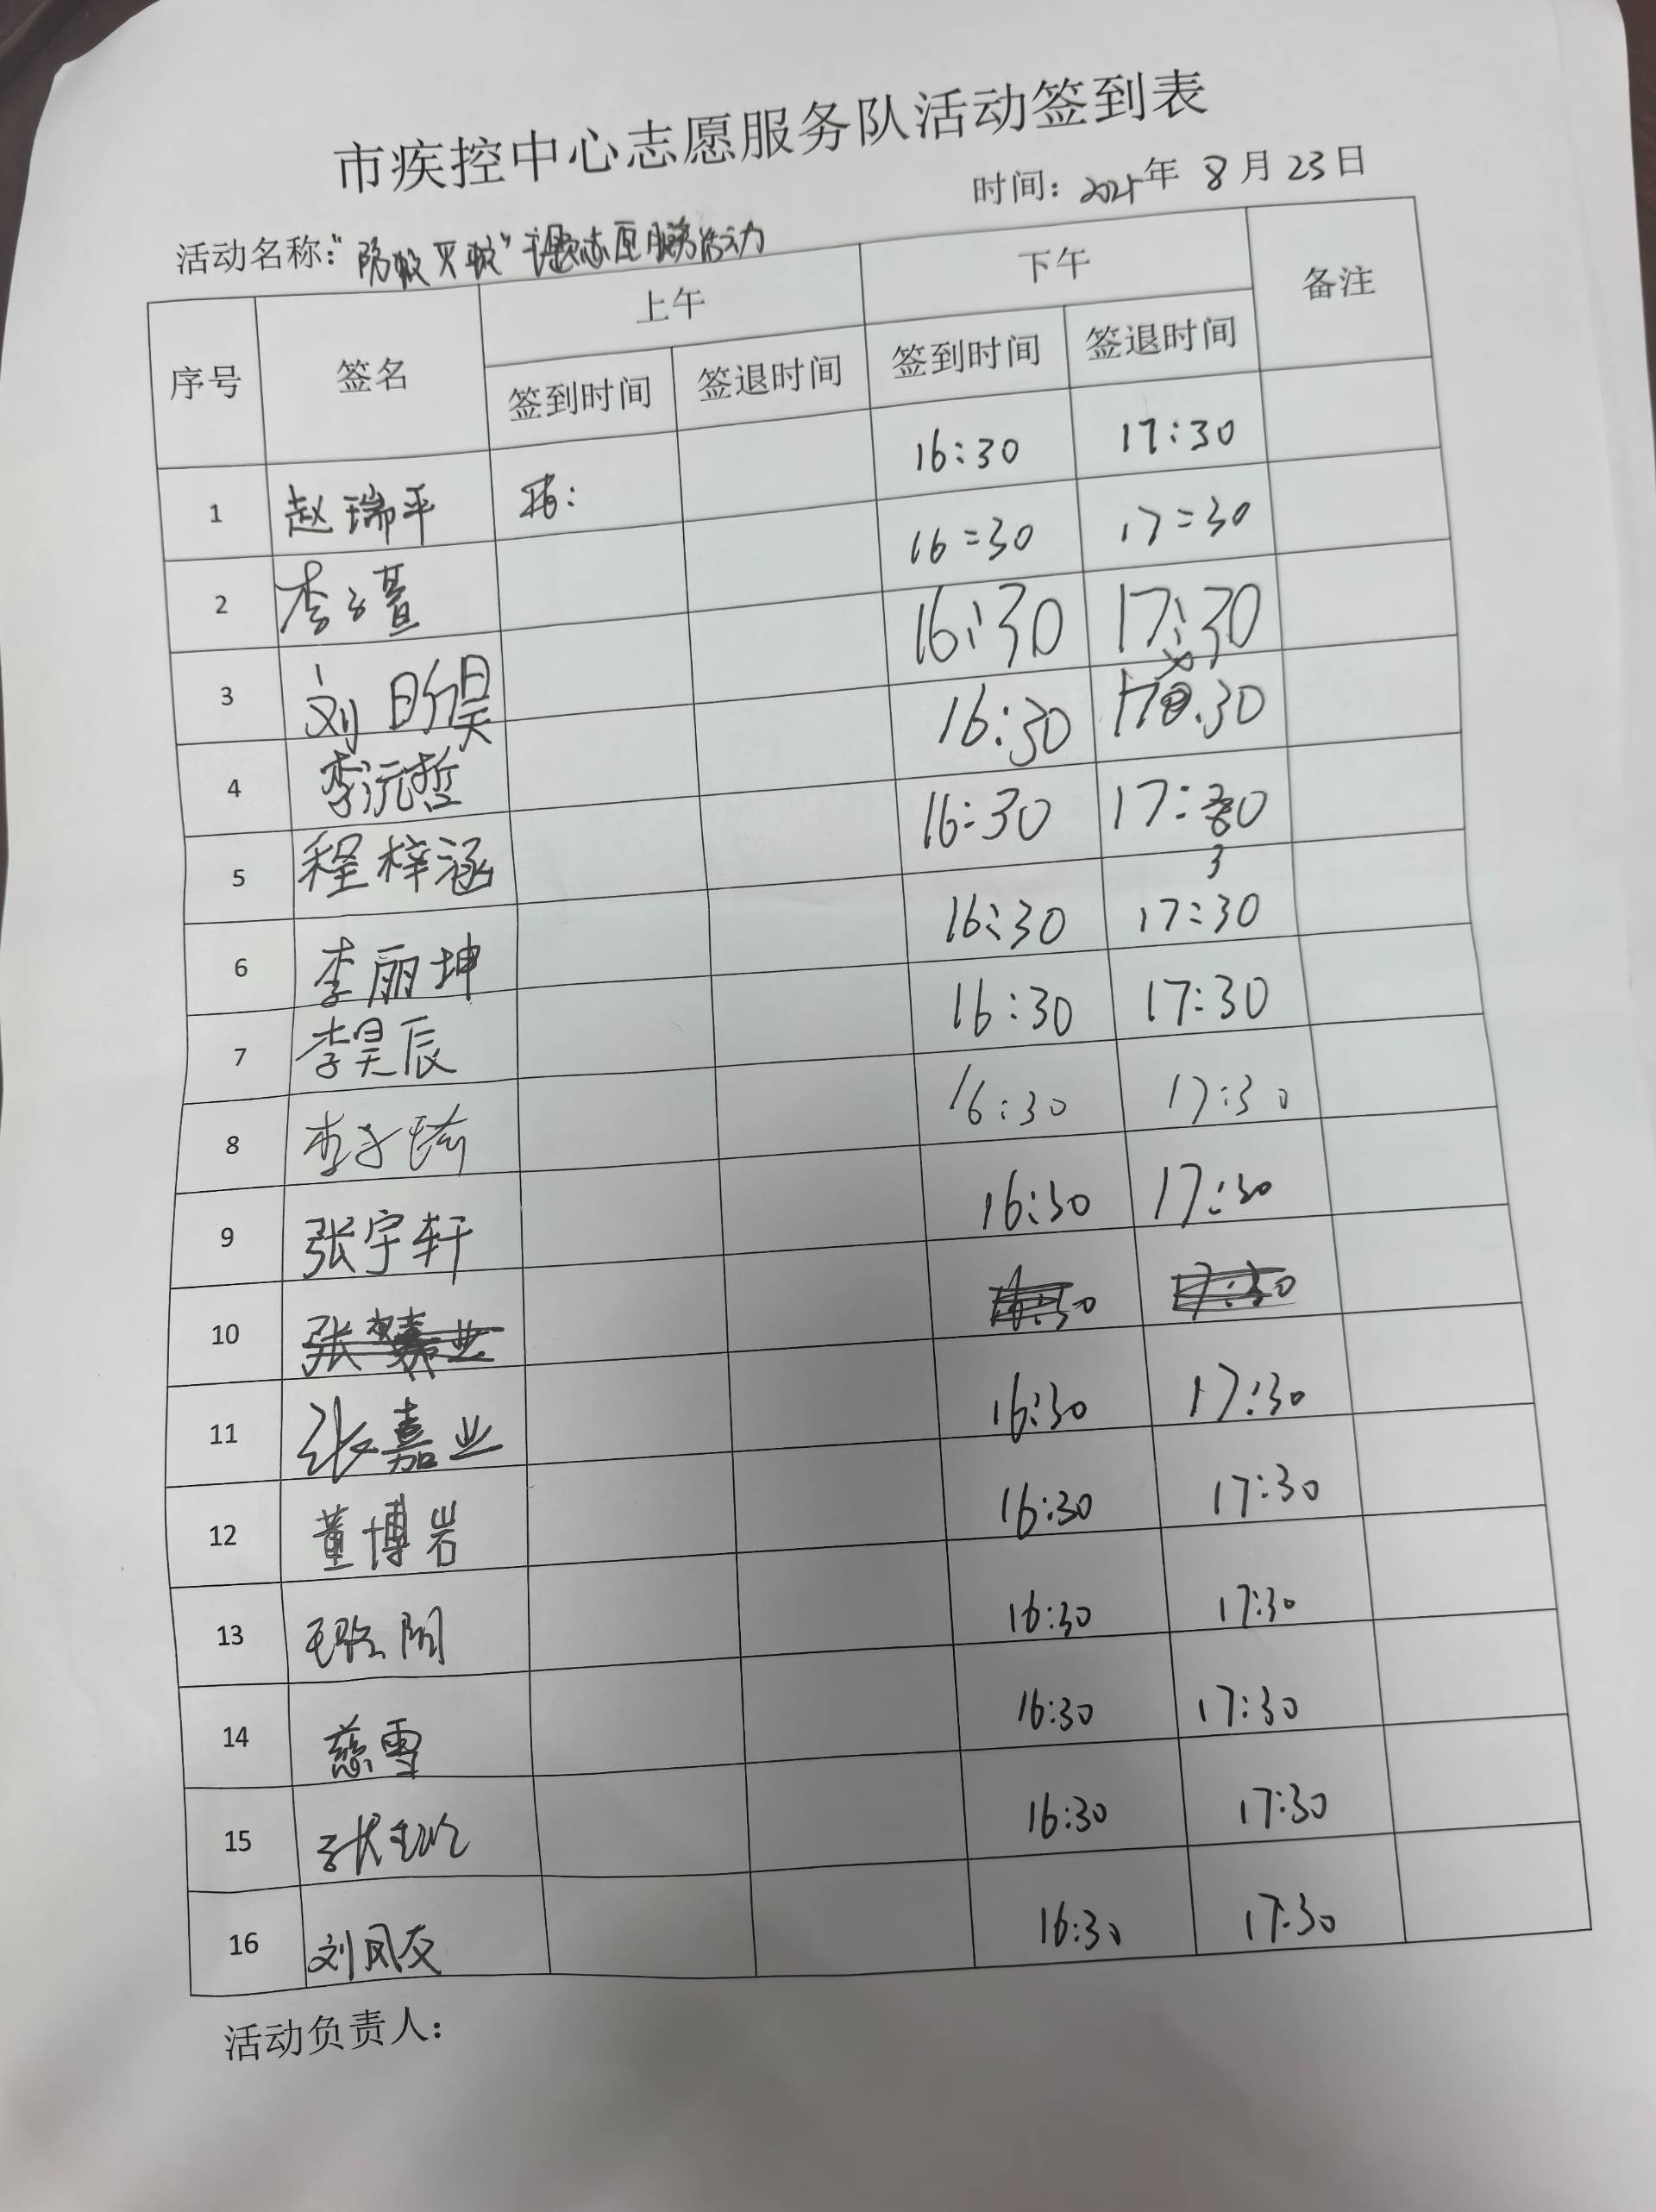 市疾控中心志愿服务队活动签到表
时间：2025年 8月 23日
活动名称：“防蚊灭蚊”主题志愿服务活动
序号 签名 上午 下午 备注
签到时间 签退时间 签到时间 签退时间
1 赵瑞平 16:30 17:30
2 李 16:30 17:30
3 刘昕昊 16:30 17:30
4 李沅哲 16:30 17:30
5 程梓涵 16:30 17:30
6 李丽坤 16:30 17:30
7 李昊辰 16:30 17:30
8 李子琦 16:30 17:30
9 张宇轩 16:30 17:30
10 张嘉业 16:30 17:30
11 张嘉业 16:30 17:30
12 董博岩 16:30 17:30
13 16:30 17:30
14 慈雪 16:30 17:30
15 张 16:30 17:30
16 刘凤友 16:30 17:30
活动负责人：